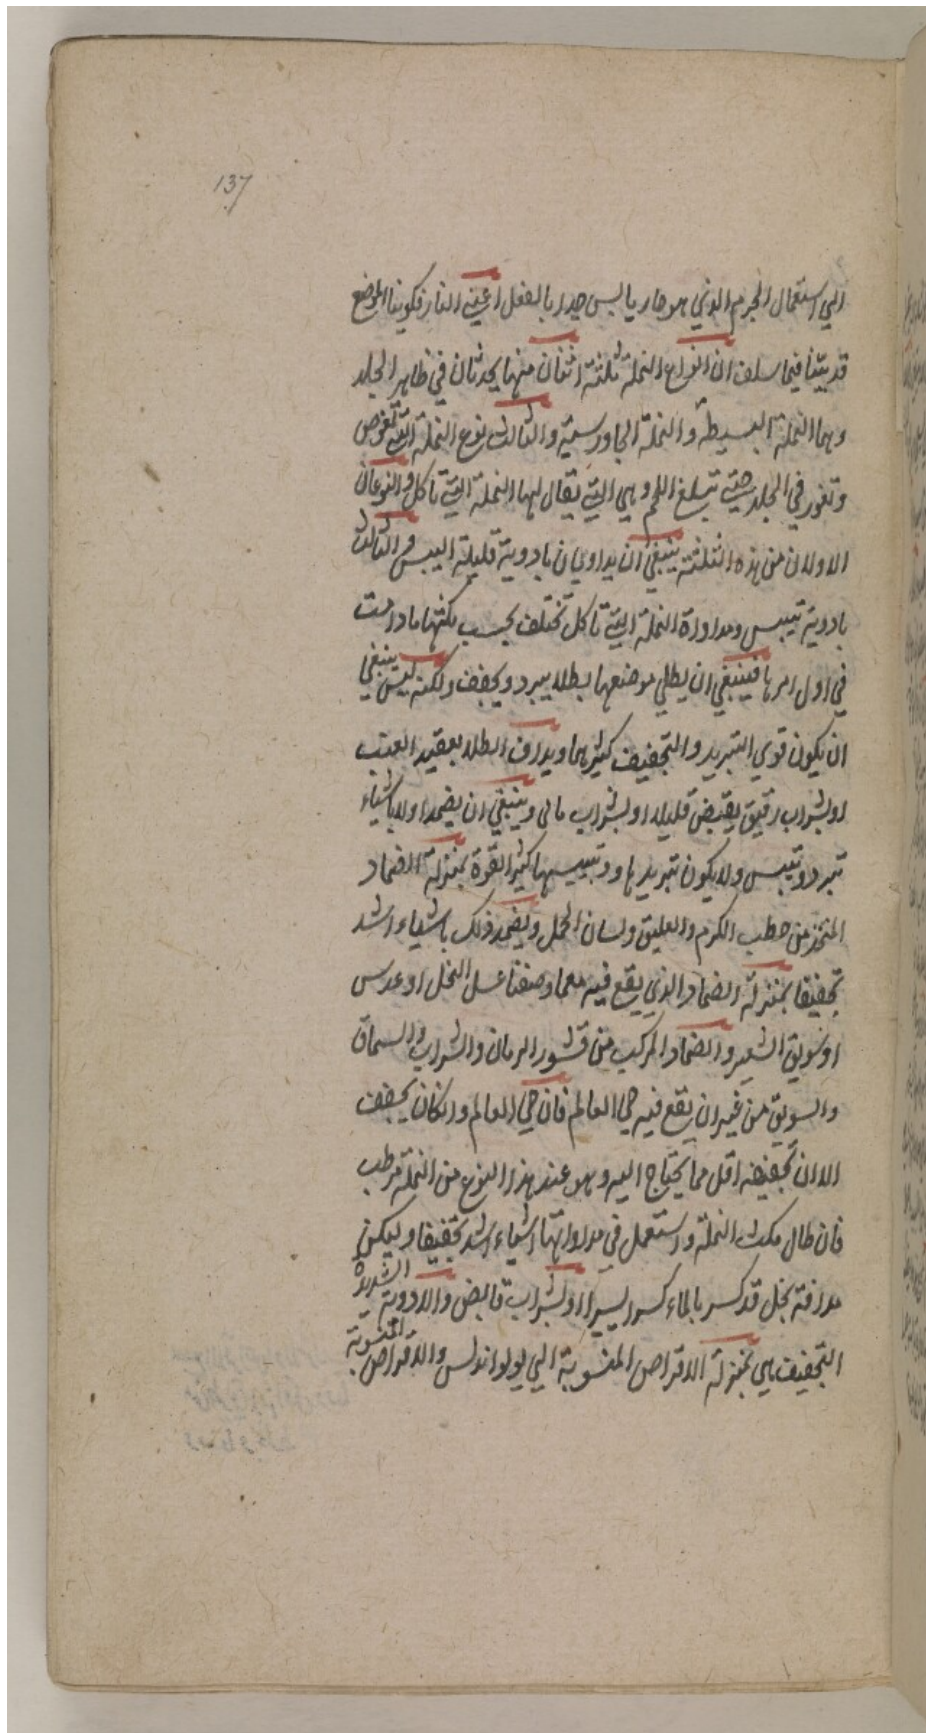 137
الي استعمال الجرم الذي هو حار يابس جدا بالفعل اعني النار فكوينا الموضع
قد بيّنا فيما سلف ان انواع النملة ثلثة اثنان منها يحدثان في ظاهر الجلد
وهما النملة البسيطة والنملة الجاورسية والثالث نوع النملة التي تغوص
وتغور في الجلد حتي تبلغ اللحم وهي التي يقال لها النملة التي تأكل والنوعان
الاولان من هذه الثلثة ينبغي ان يداويان بادوية قليلة اليبس والثالث
بادوية تيبس ومداواة النملة التي تأكل تختلف بحسب مكثها مادامت
في اول امرها فينبغي ان يطلي موضعها بطلاء يبرد ويجفف ولكنه ليس ينبغي
ان يكون قوي التبريد والتجفيف كثيرهما ويداف الطلاء بعقيد العنب
او بشراب رقيق يقبض قليلا او بشراب مائي وينبغي ان يضمد اولا باشياء
تبرد وتيبس ولا يكون تبريدها وتيبيسها كثير القوة بمنزلة الاضماد
المتخذ من حطب الكرم والعليق ولسان الحمل ويضمد ذلك باشياء اشد
تجفيفا بمنزلة الضماد الذي يقع فيه معما وصفنا عسل النحل او عدس
او سويق الشعير والضماد المركب من قشور الرمان والشراب والسماق
والسويق من غير ان يقع فيه حي العالم فان حي العالم وان كان يجفف
الا ان تجفيفه اقل مما يحتاج اليه وهو عند هذا النوع من النملة مرطب
فان طال مكث النملة واستعمل في مداواتها اشياء اشد تجفيفا وليكن
مدافة بخل قد كسر بالماء كسرا يسيرا او بشراب قابض والادوية الشديدة
التجفيف هي بمنزلة الاقراص المنسوبة الي بولوانداس والاقراص المنسوبة